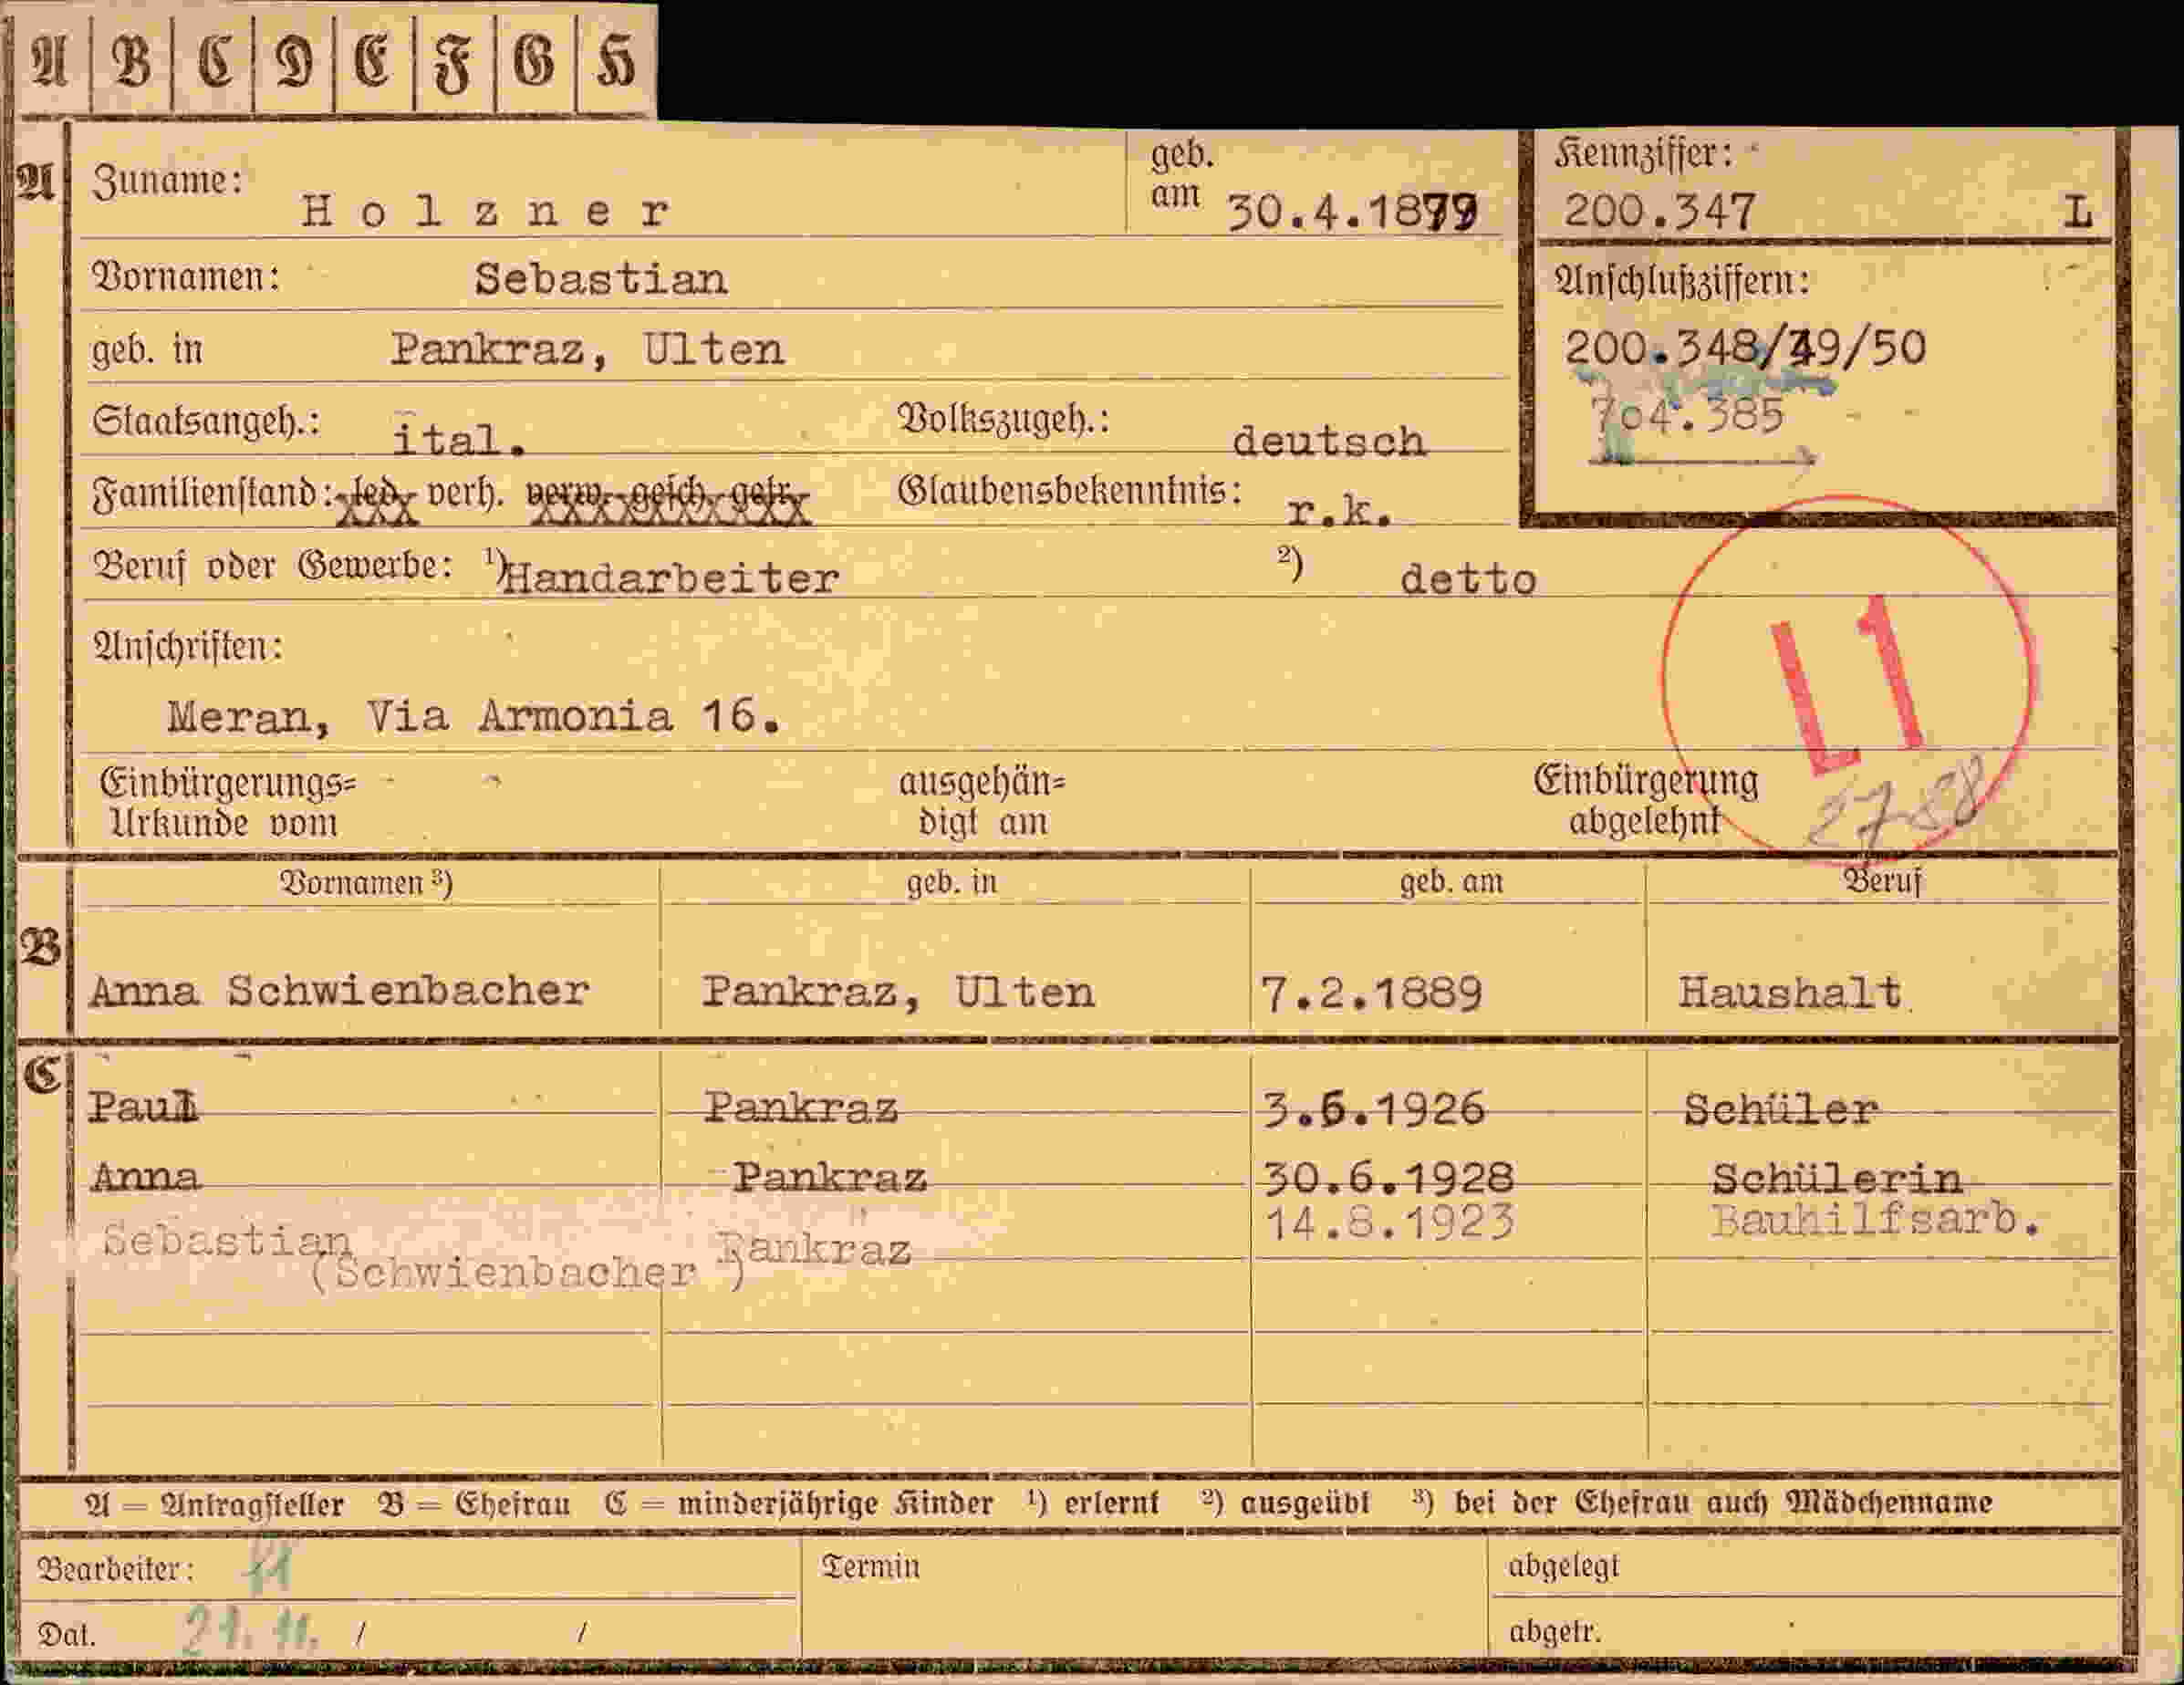 A B C D E F G H
A Zuname: Holzner geb. am 30.4.1879 Kennziffer: 200.347 L
Vornamen: Sebastian Anschlußziffern:
geb. in Pankraz, Ulten 200.348/49/50
Staatsangeh.: ital. Volkszugeh.: deutsch 704.385
Familienstand: led. verh. verw. gesch. getr. Glaubensbekenntnis: r.k.
Beruf oder Gewerbe: ¹) Handarbeiter ²) detto
Anschriften: L1
Meran, Via Armonia 16.
Einbürgerungs= Urkunde vom ausgehän= digt am Einbürgerung abgelehnt
Vornamen ³) geb. in geb. am Beruf
B
Anna Schwienbacher Pankraz, Ulten 7.2.1889 Haushalt
C
Paul Pankraz 3.6.1926 Schüler
Anna Pankraz 30.6.1928 Schülerin
Sebastian Pankraz 14.8.1923 Bauhilfsarb.
(Schwienbacher )
A = Antragsteller B = Ehefrau C = minderjährige Kinder ¹) erlernt ²) ausgeübt ³) bei der Ehefrau auch Mädchenname
Bearbeiter: Termin abgelegt
Dat. 21.11. / / abgetr.